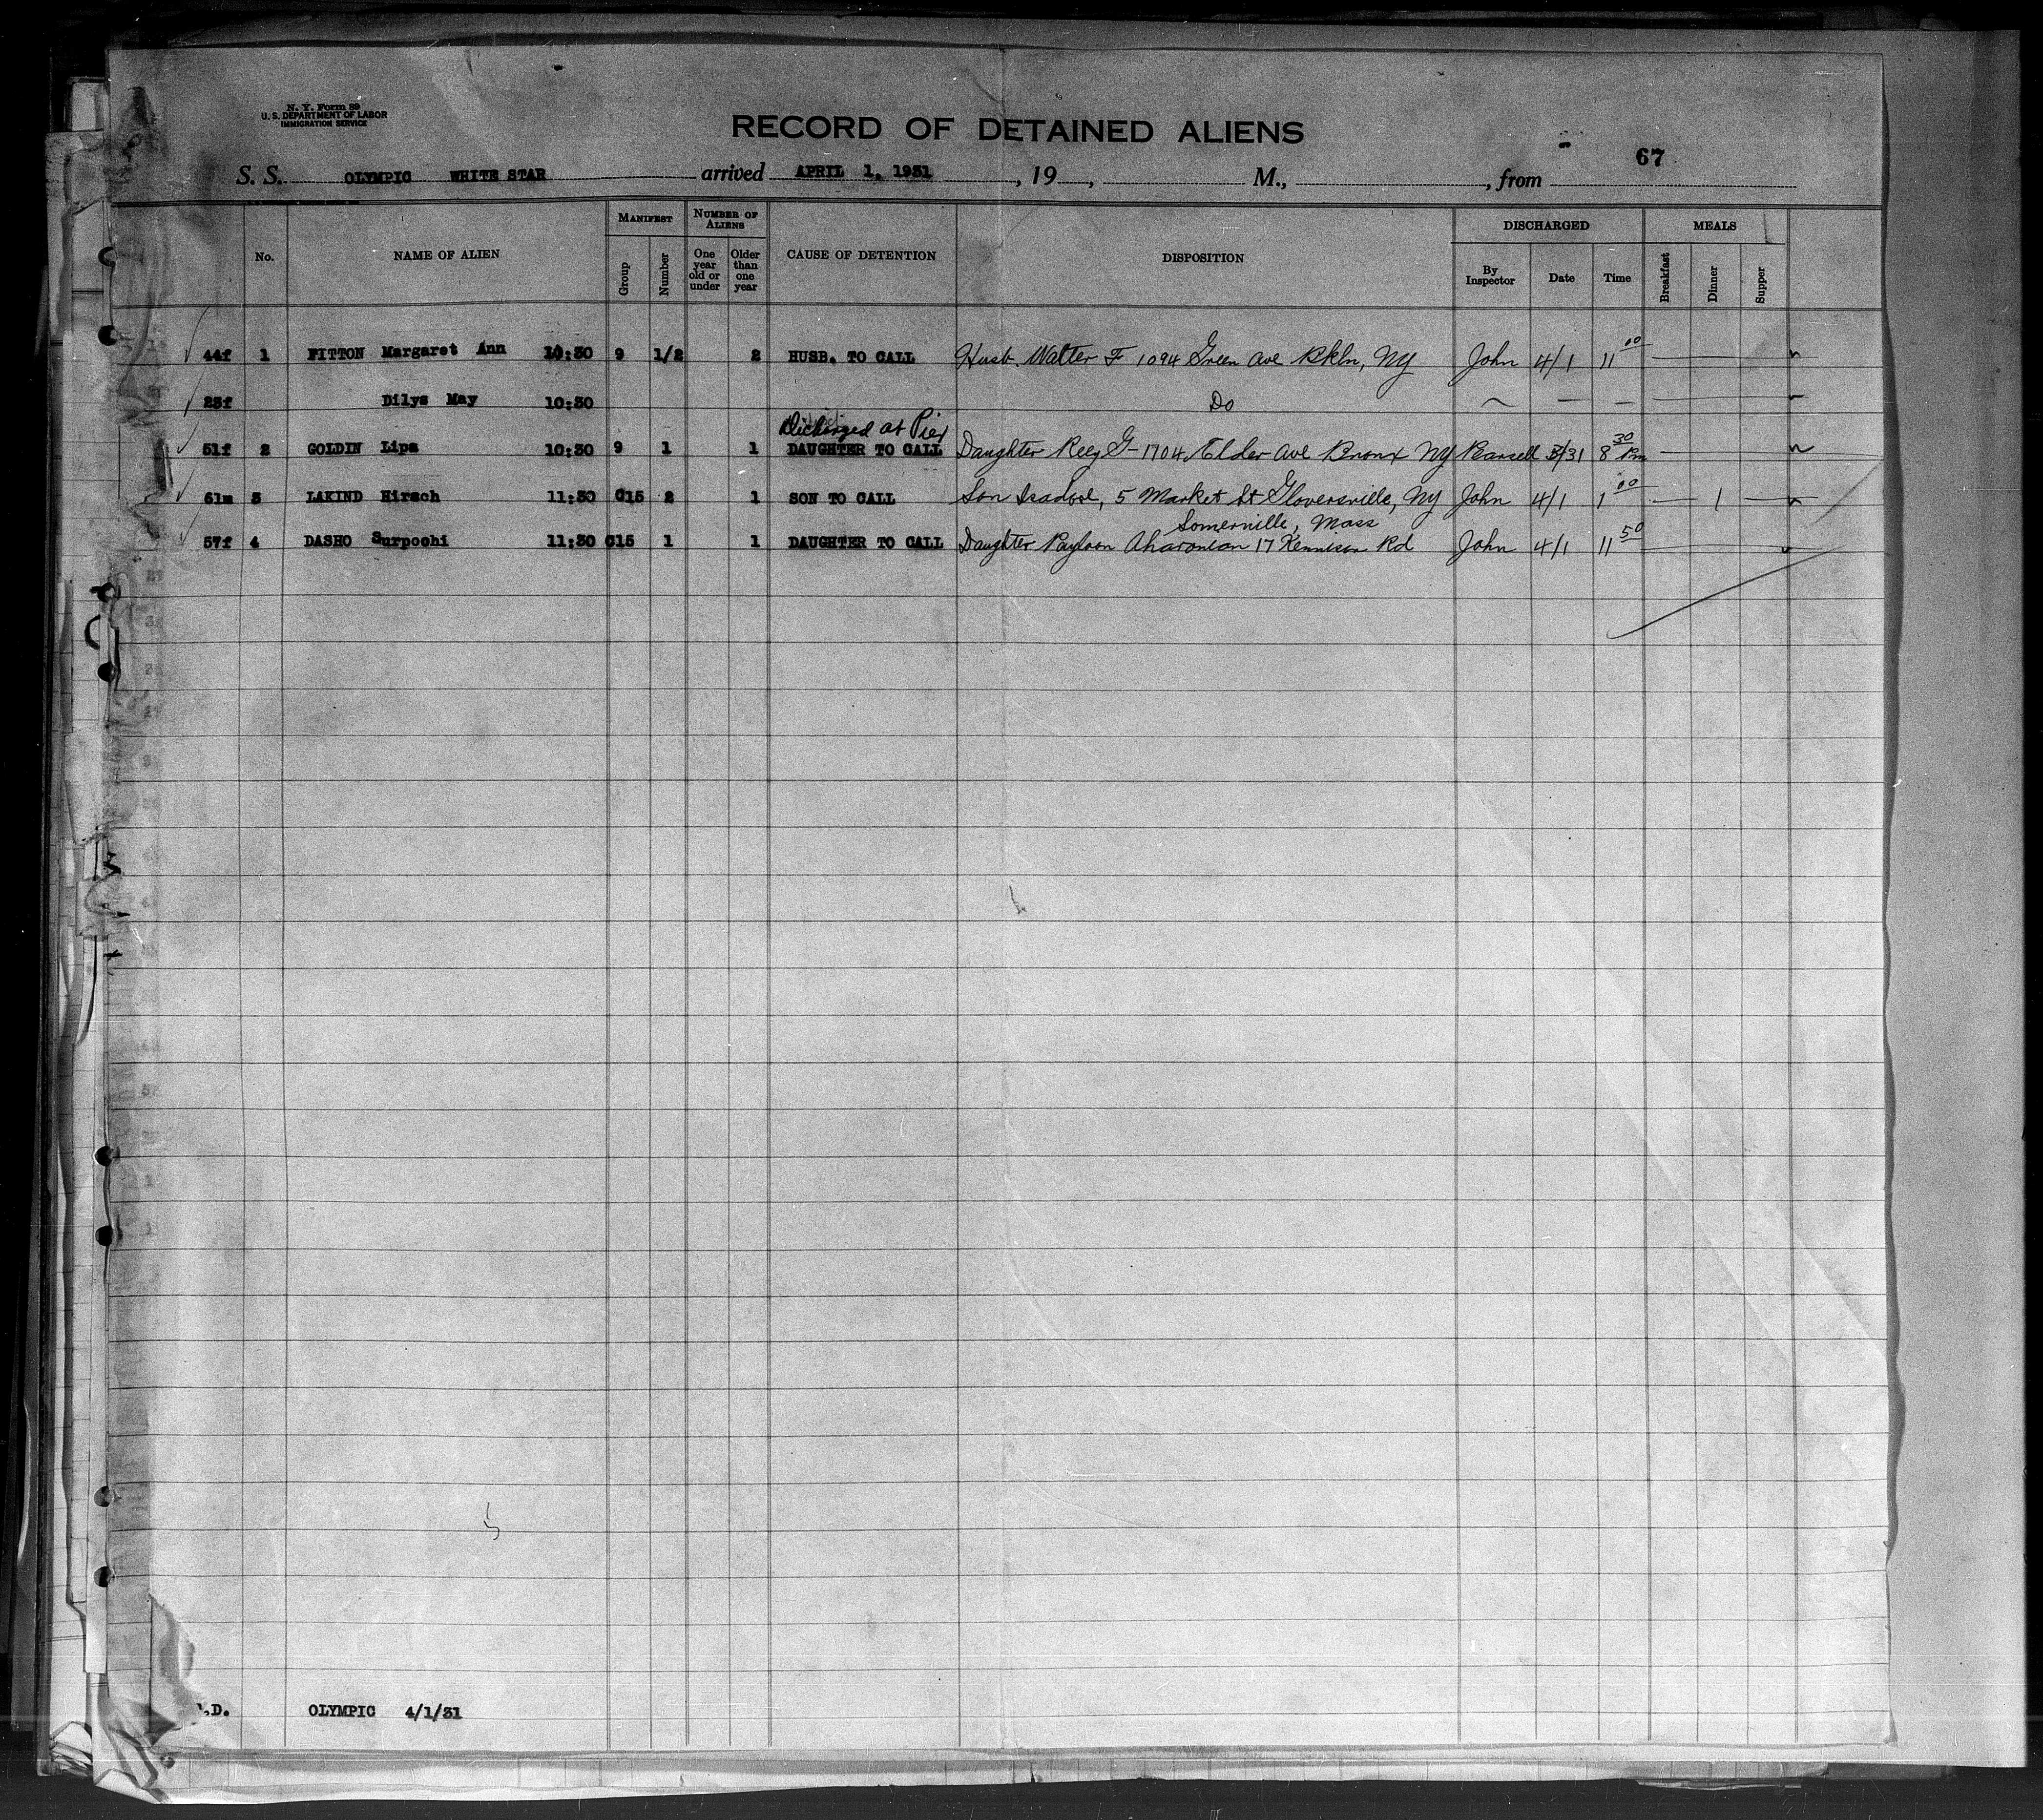 N. Y. Form 89
U. S. DEPARTMENT OF LABOR
IMMIGRATION SERVICE
RECORD OF DETAINED ALIENS
67
S. S. OLYMPIC WHITE STAR arrived APRIL 1, 1931, 19 , M., , from
No. NAME OF ALIEN MANIFEST Group Number NUMBER OF ALIENS One year old or under Older than one year CAUSE OF DETENTION DISPOSITION DISCHARGED By Inspector Date Time MEALS Breakfast Dinner Supper
44f 1 FITTON Margaret Ann 10:30 9 1/2 2 HUSB. TO CALL Husb. Walter F 1094 Green Ave Bkln, NY John 4/1 11 00
23f Dilys May 10:30 Do
Discharged at Pier
51f 2 GOLDIN Lipa 10:30 9 1 1 DAUGHTER TO CALL Daughter G- 1704 Elder Ave Bronx NY 3/31 8 30 Pm
61m 3 LAKIND Hirsch 11:30 C15 2 1 SON TO CALL Son Isadore, 5 Market St Gloversville, NY John 4/1 1 00 1
Somerville, Mass
57f 4 DASHO Surpoohi 11:30 C15 1 1 DAUGHTER TO CALL Daughter Aharonian 17 Kennison Rd John 4/1 11 50
.D. OLYMPIC 4/1/31